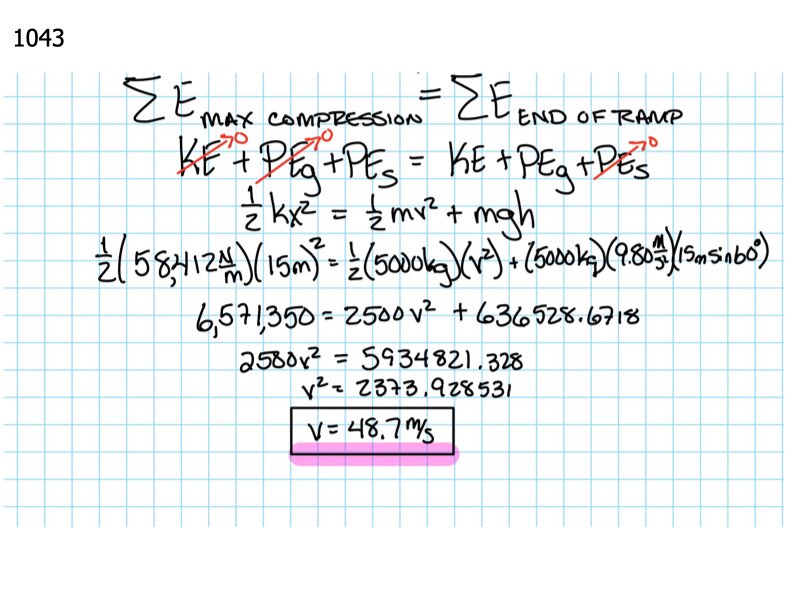 1043
ΣE MAX COMPRESSION = ΣE END OF RAMP
KE→0 + PEg→0 + PEs = KE + PEg + PEs→0
1/2 kx² = 1/2 mv² + mgh
1/2 (58,412 N/m)(15m)² = 1/2 (5000kg)(v²) + (5000kg)(9.80 m/s²)(15m sin60°)
6,571,350 = 2500v² + 636528.6718
2500v² = 5934821.328
v² = 2373.928531
v = 48.7 m/s